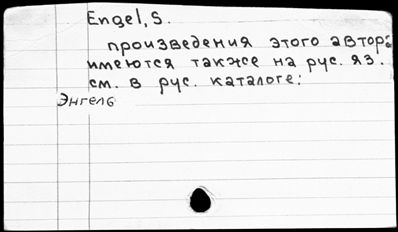 Engel, S.
произведения этого автора
имеются также на рус. яз.
см. в рус. каталоге:
Энгель